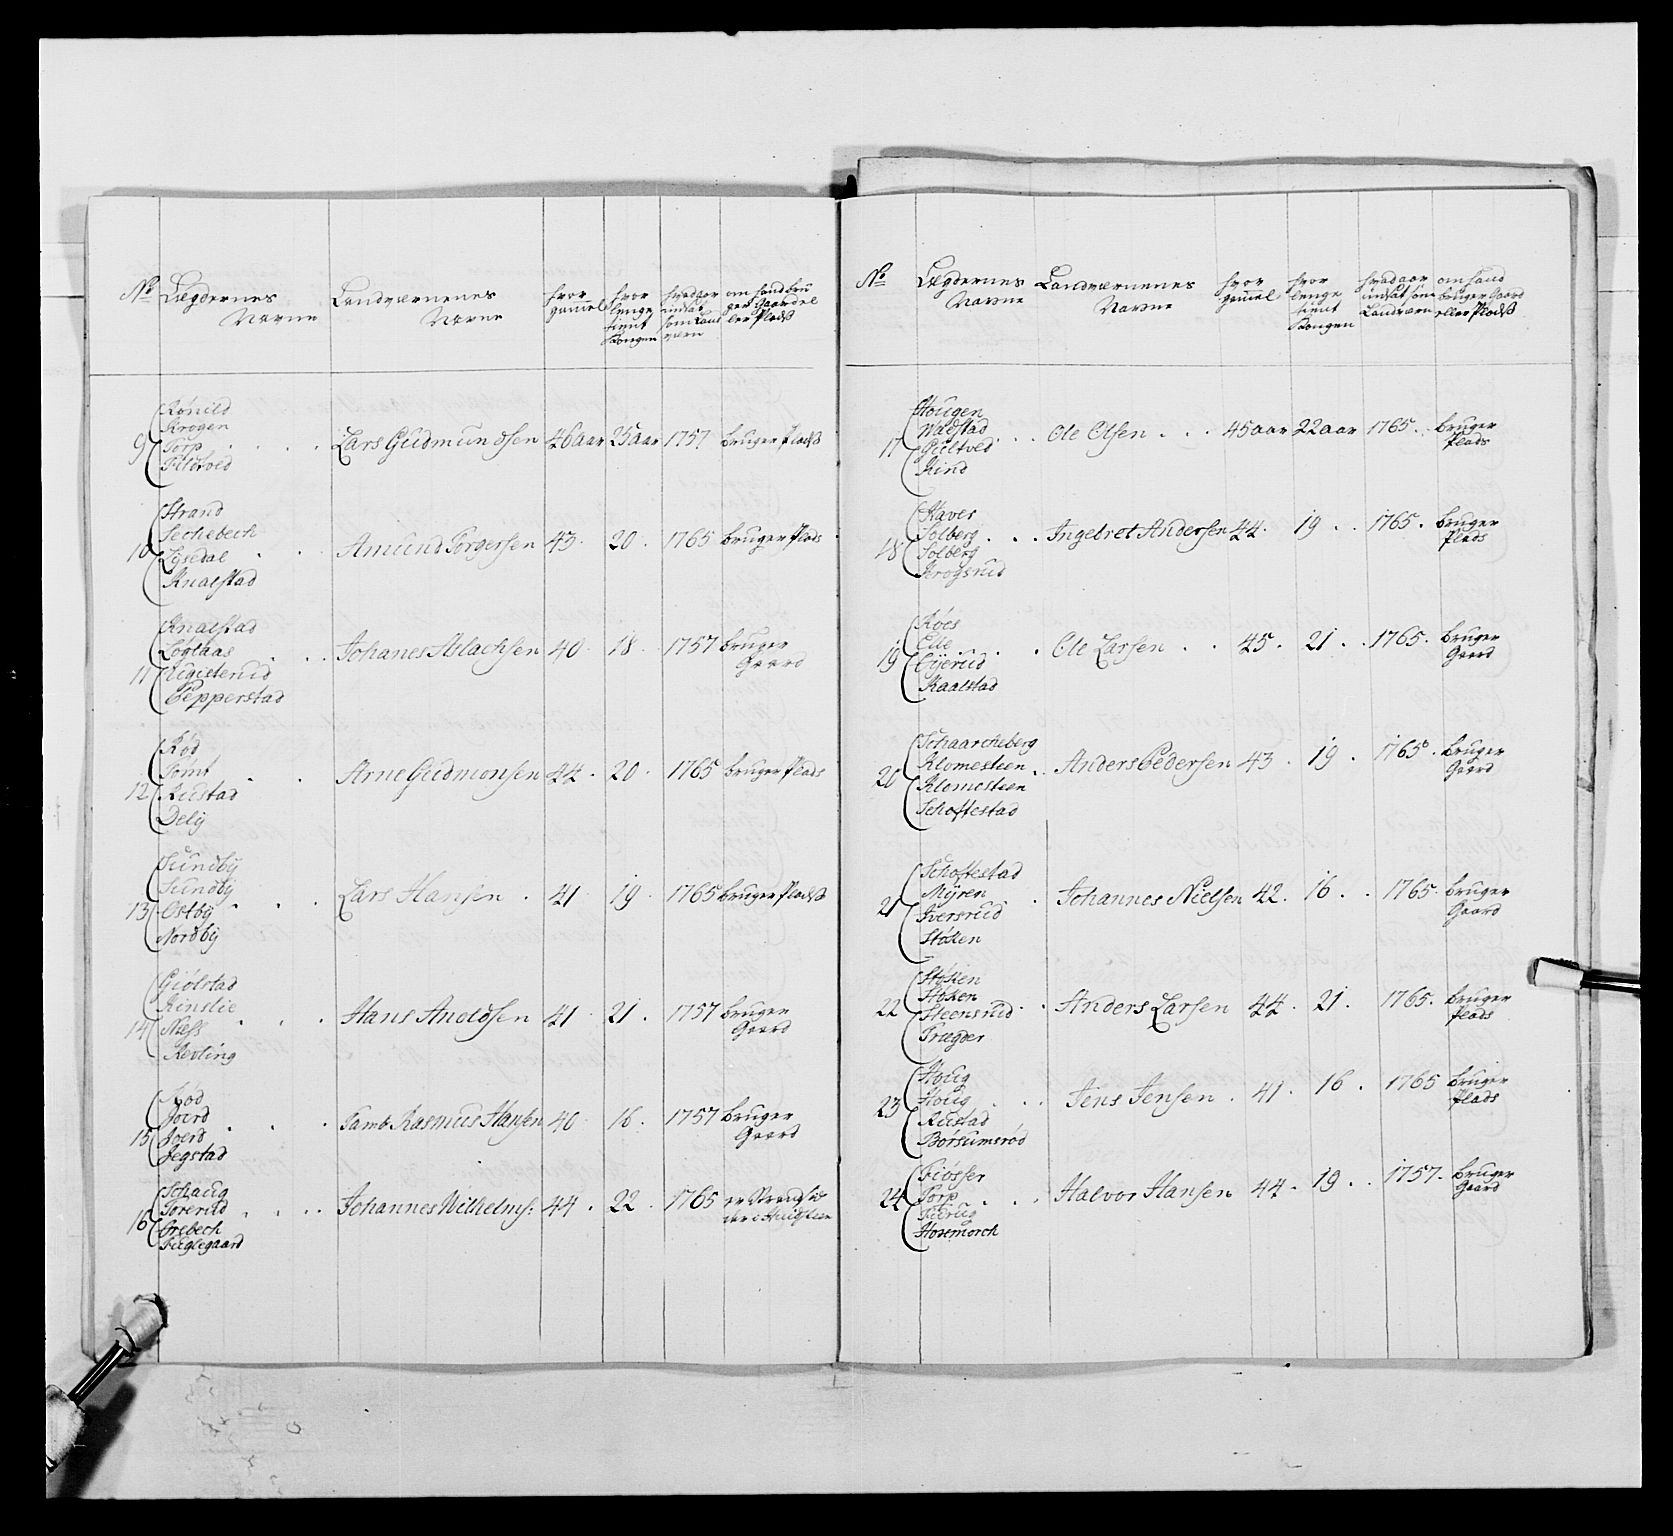 No Lægdernes Navne
Landværnenes Navne
hvor gammel
hvor lenge tient Kongen
hvad aar indsat som Land værn
om hand bru ger Gaard el ler Plads
9 Rönild
Krogen
Torp
Lars Gudmundsen 46 aar 25 aar 1757 bruger Plads
10 Strand
Sechebech
Lysedal
Knalstad
Amund Torgersen 43 20 1765 bruger Plads
11 Knalstad
Johanes Aslachsen 40 18 1757 bruger Gaard
Pepperstad
12 Röd
Tomt
Rustad
Dely
Arne Gudmonsen 44 20 1765 bruger Plads
13 Sundby
Sundby
Ostby
Nordby
Lars Hansen 41 19 1765 bruger Plads
14 Giölstad
Rinslie
Næss
Kevling
Hans 41 21 1757 bruger Gaard
15 Röd
Joerd
Joerd
Jegstad
Tamb. Rasmus Hansen 40 16 1757 bruger Gaard
16 Schaug
Torerud
Grebech
Fuglegaard
Johannes Wilhelms: 44 22 1765
No Lægdernes Navne
Landværnenes Navne
hvor gammel
hvor lenge tient Kongen
hvad aar indsat som Landværn
om hand bruger Gaard eller Plads
17 Hougen
Wadstad
Gultved
Kind
Ole Olsen 45 aar 22 aar 1765 bruger Plads
18 Kaver
Solberg
Solberg
Krogsrud
Ingebret Andersen 44 19 1765 bruger Plads
19 Roes
Eye
Kaalstad
Ole Larsen 45 21 1765 bruger Gaard
20 Schaarcheberg
Klomesteen
Klomesteen
Schoftestad
Anders Pedersen 43 19 1765 bruger Gaard
21 Schoftestad
Myren
Iversrud
Stöken
Johannes Nielsen 42 16 1765 bruger Gaard
22 Stöken
Stöken
Steensrud
Trægder
Anders Larsen 44 21 1765 bruger Plads
23 Houg
Houg
Rustad
Börsumsröd
Jens Jensen 41 16 1765 bruger Plads
24 Fiösser
Torp
Furug
Hosemorch
Halvor Hansen 44 19 1757 bruger Gaard